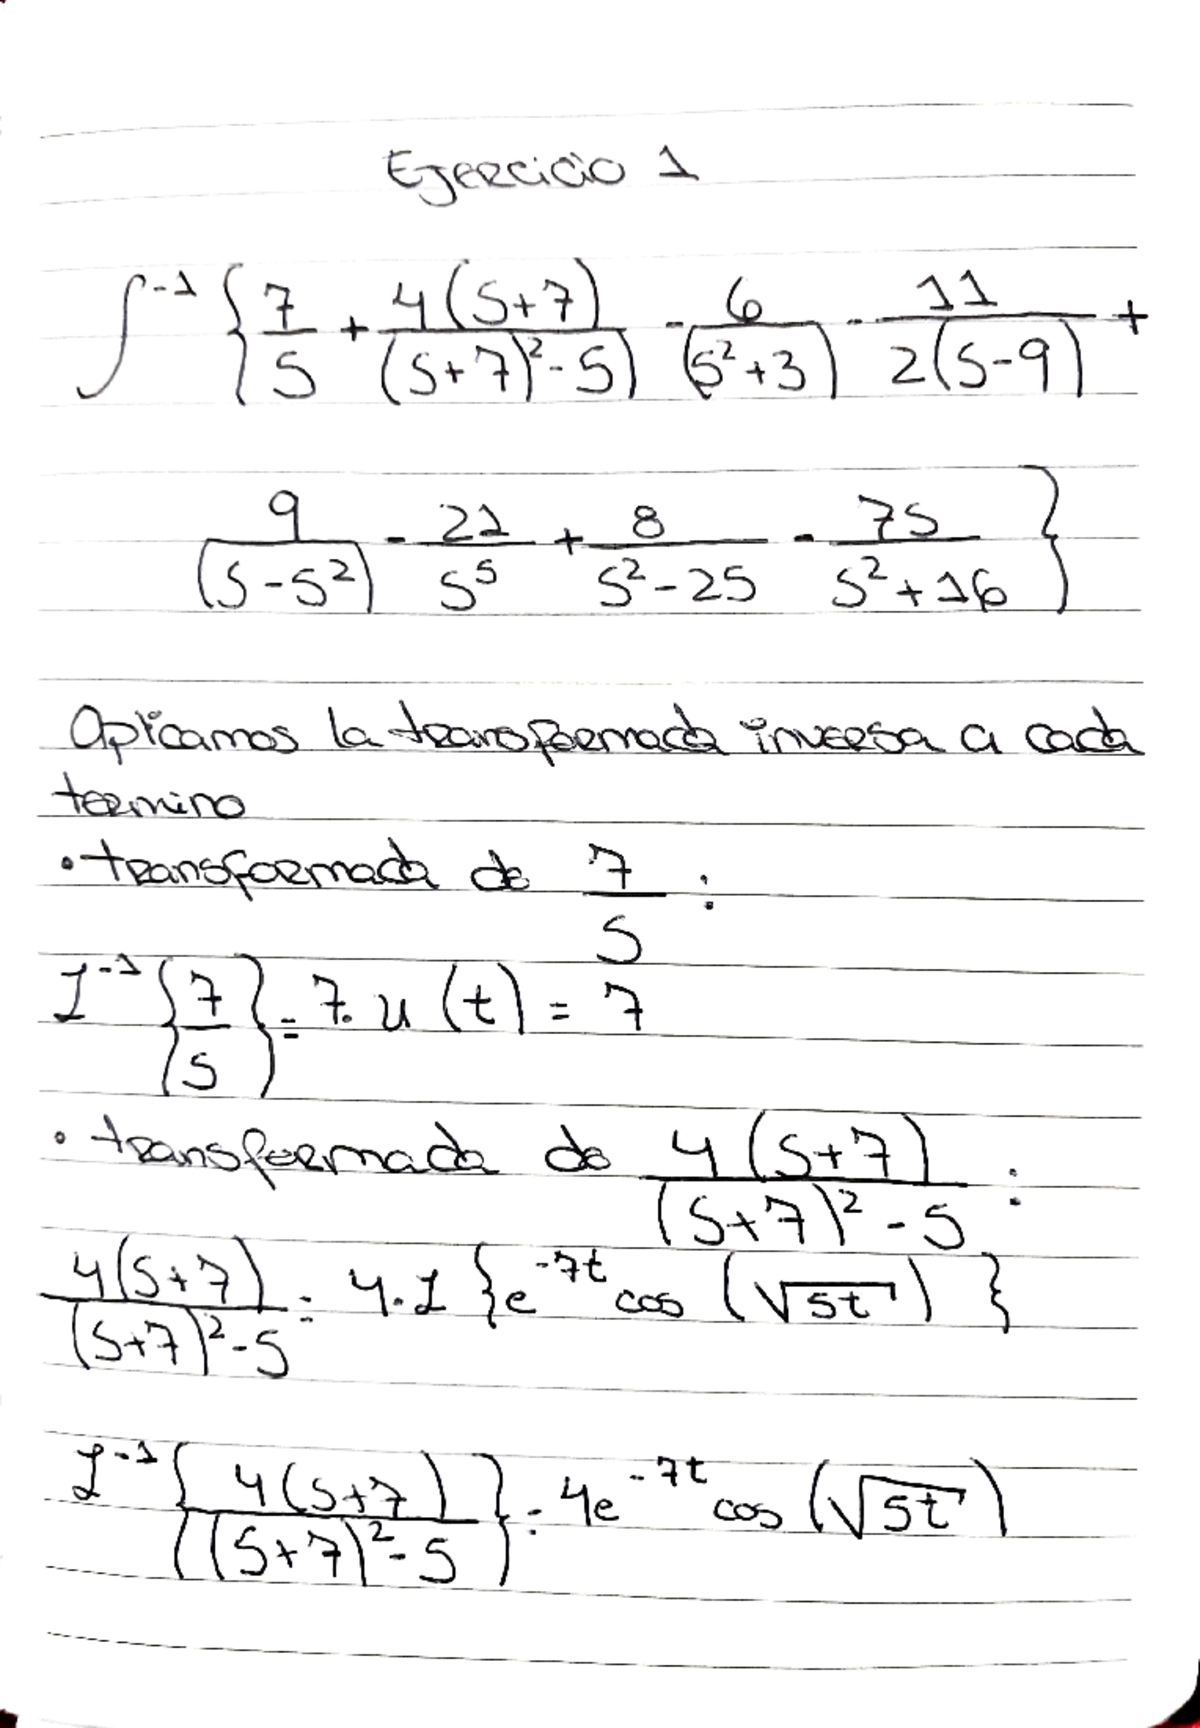 Ejercicio 1
∫⁻¹ { 7/s + 4(s+7)/((s+7)²-5) - 6/(s²+3) - 11/2(s-9) +
9/(s-s²) - 21/s⁵ + 8/s²-25 - 7s/s²+16 }
Aplicamos la transformada inversa a cada
termino
• transformada de 7/s :
L⁻¹ { 7/s } = 7. u (t) = 7
• transformada de 4(s+7)/(s+7)²-5 :
4(s+7)/(s+7)²-5 = 4.L { e^-7t cos (√5t) }
L⁻¹ { 4(s+7)/(s+7)²-5 } = 4e^-7t cos (√5t)